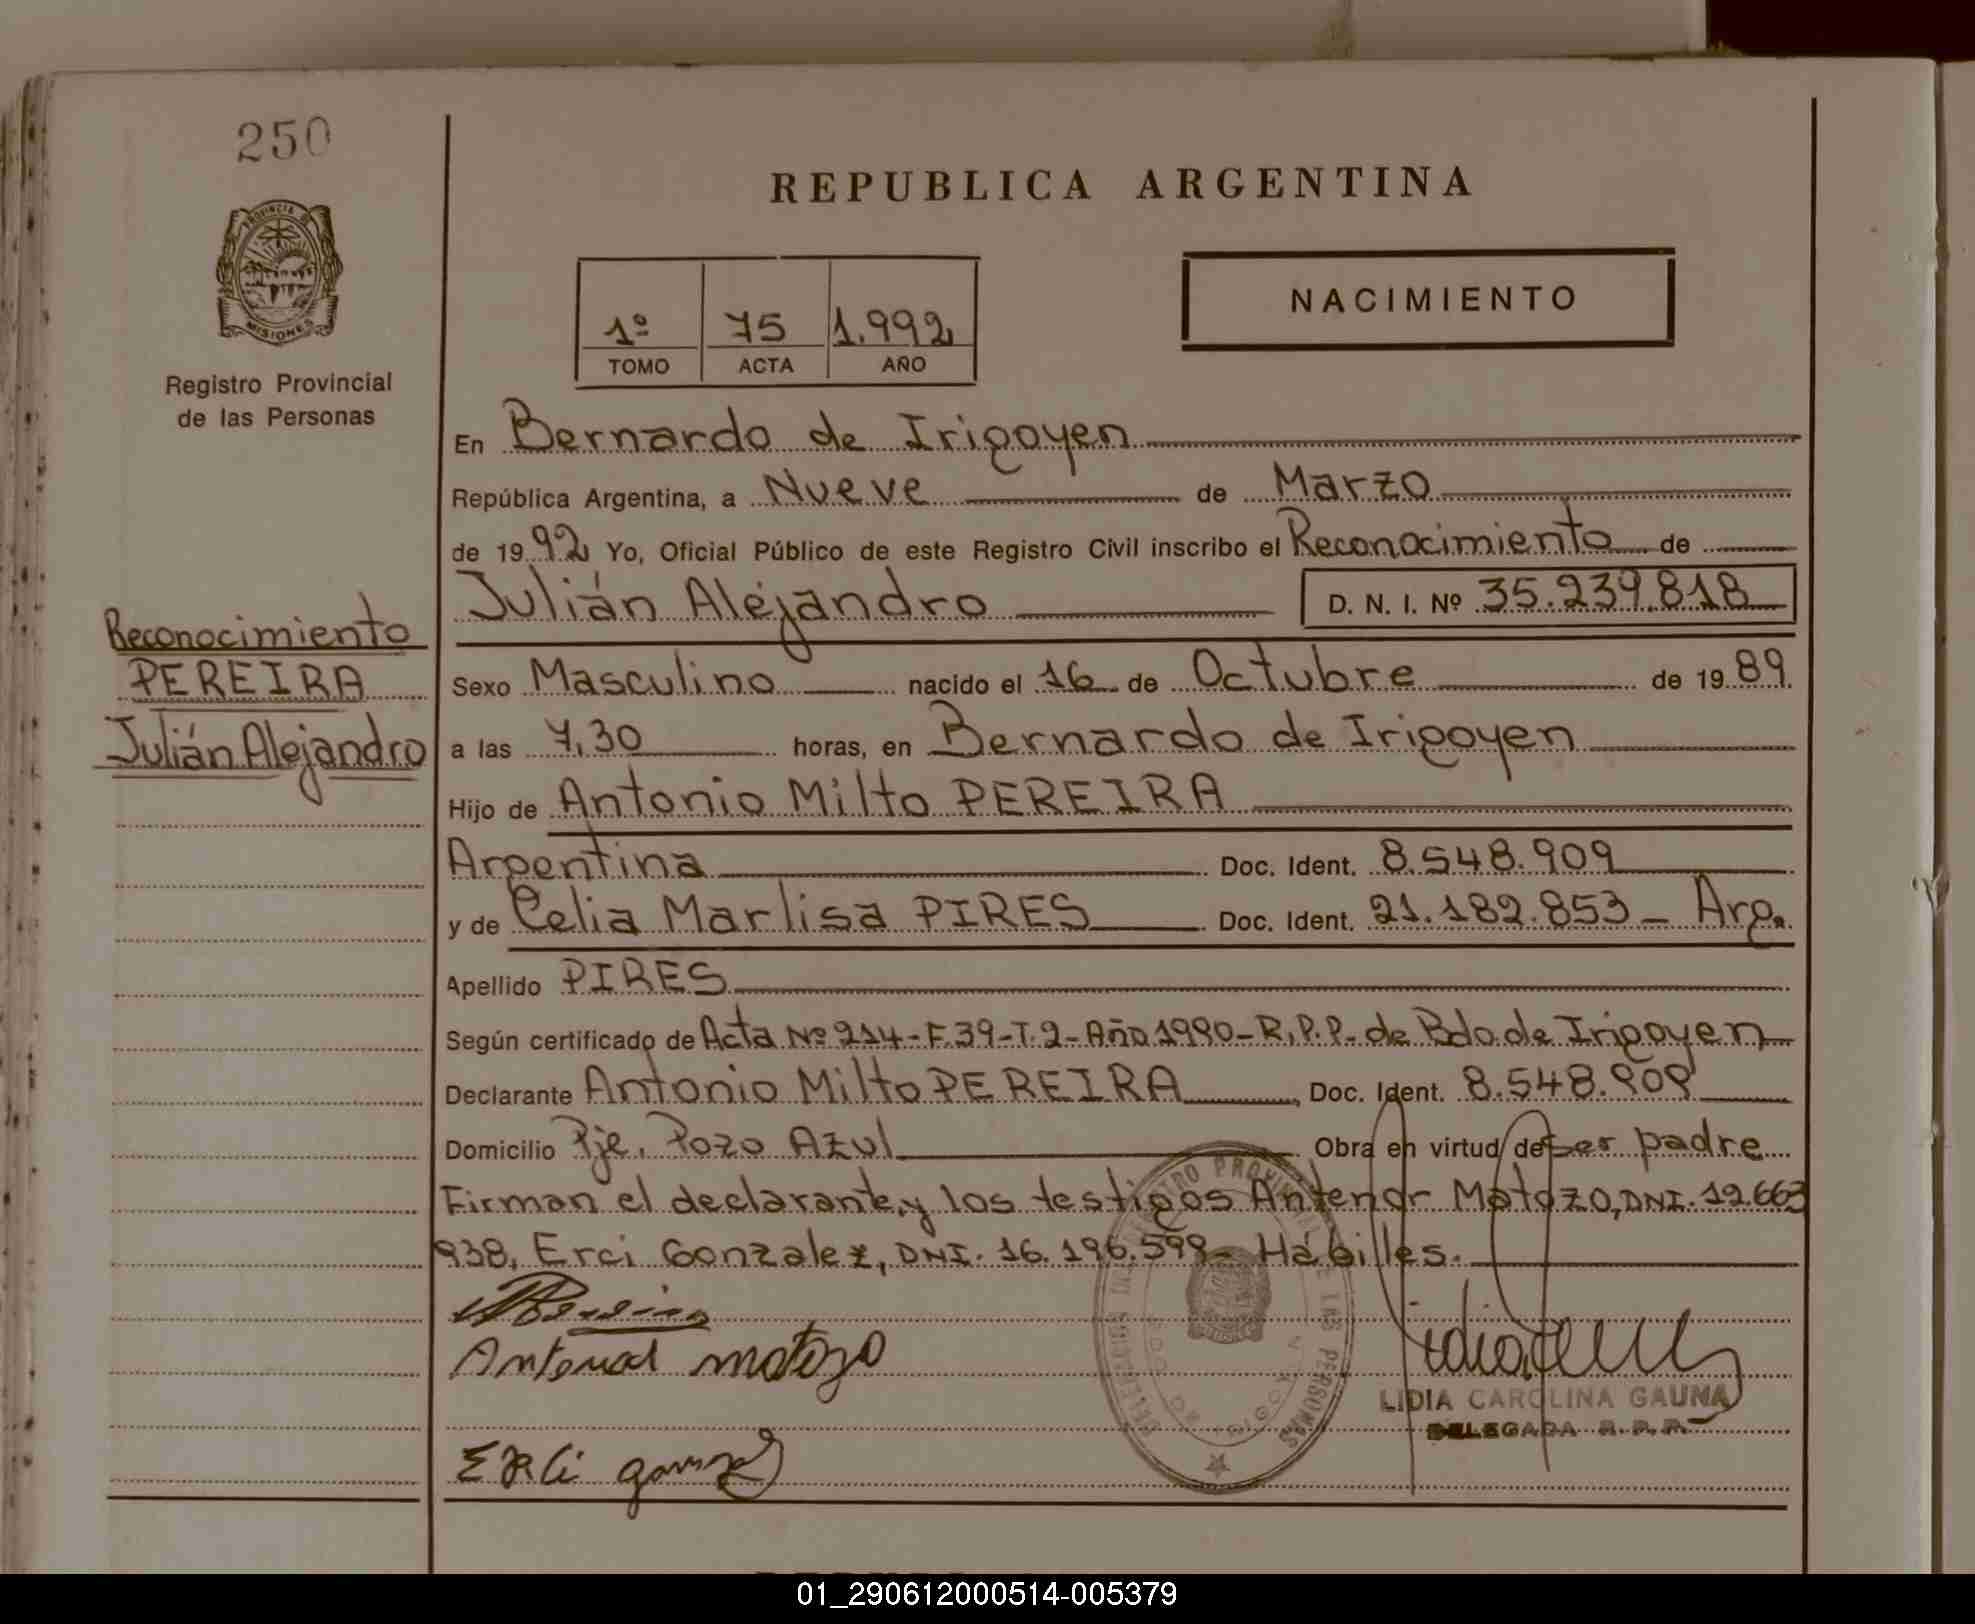 250
REPUBLICA ARGENTINA
PROVINCIA DE
MISIONES
Registro Provincial
de las Personas
1º 75 1.992
TOMO ACTA AÑO
NACIMIENTO
En Bernardo de Irigoyen
República Argentina, a Nueve de Marzo
de 1992 Yo, Oficial Público de este Registro Civil inscribo el Reconocimiento de
Julián Alejandro D. N. I. Nº 35.239.818
Reconocimiento
PEREIRA
Julián Alejandro
Sexo Masculino nacido el 16 de Octubre de 1989
a las 7,30 horas, en Bernardo de Irigoyen
Hijo de Antonio Milto PEREIRA
Argentina Doc. Ident. 8.548.909
y de Celia Marlisa PIRES Doc. Ident. 21.182.853 - Arg.
Apellido PIRES
Según certificado de Acta Nº 214-F.39-T.2-Año 1990-R.P.P.-de Bdo de Irigoyen
Declarante Antonio Milto PEREIRA, Doc. Ident. 8.548.909
Domicilio Pje. Pozo Azul Obra en virtud de ser padre
Firman el declarante, y los testigos Antenor Matozo, DNI. 12.663
938, Erci Gonzalez, DNI. 16.196.599- Hábilles.
Antenad matozo
LIDIA CAROLINA GAUNA
DELEGADA R.P.P.
Erci
01_290612000514-005379